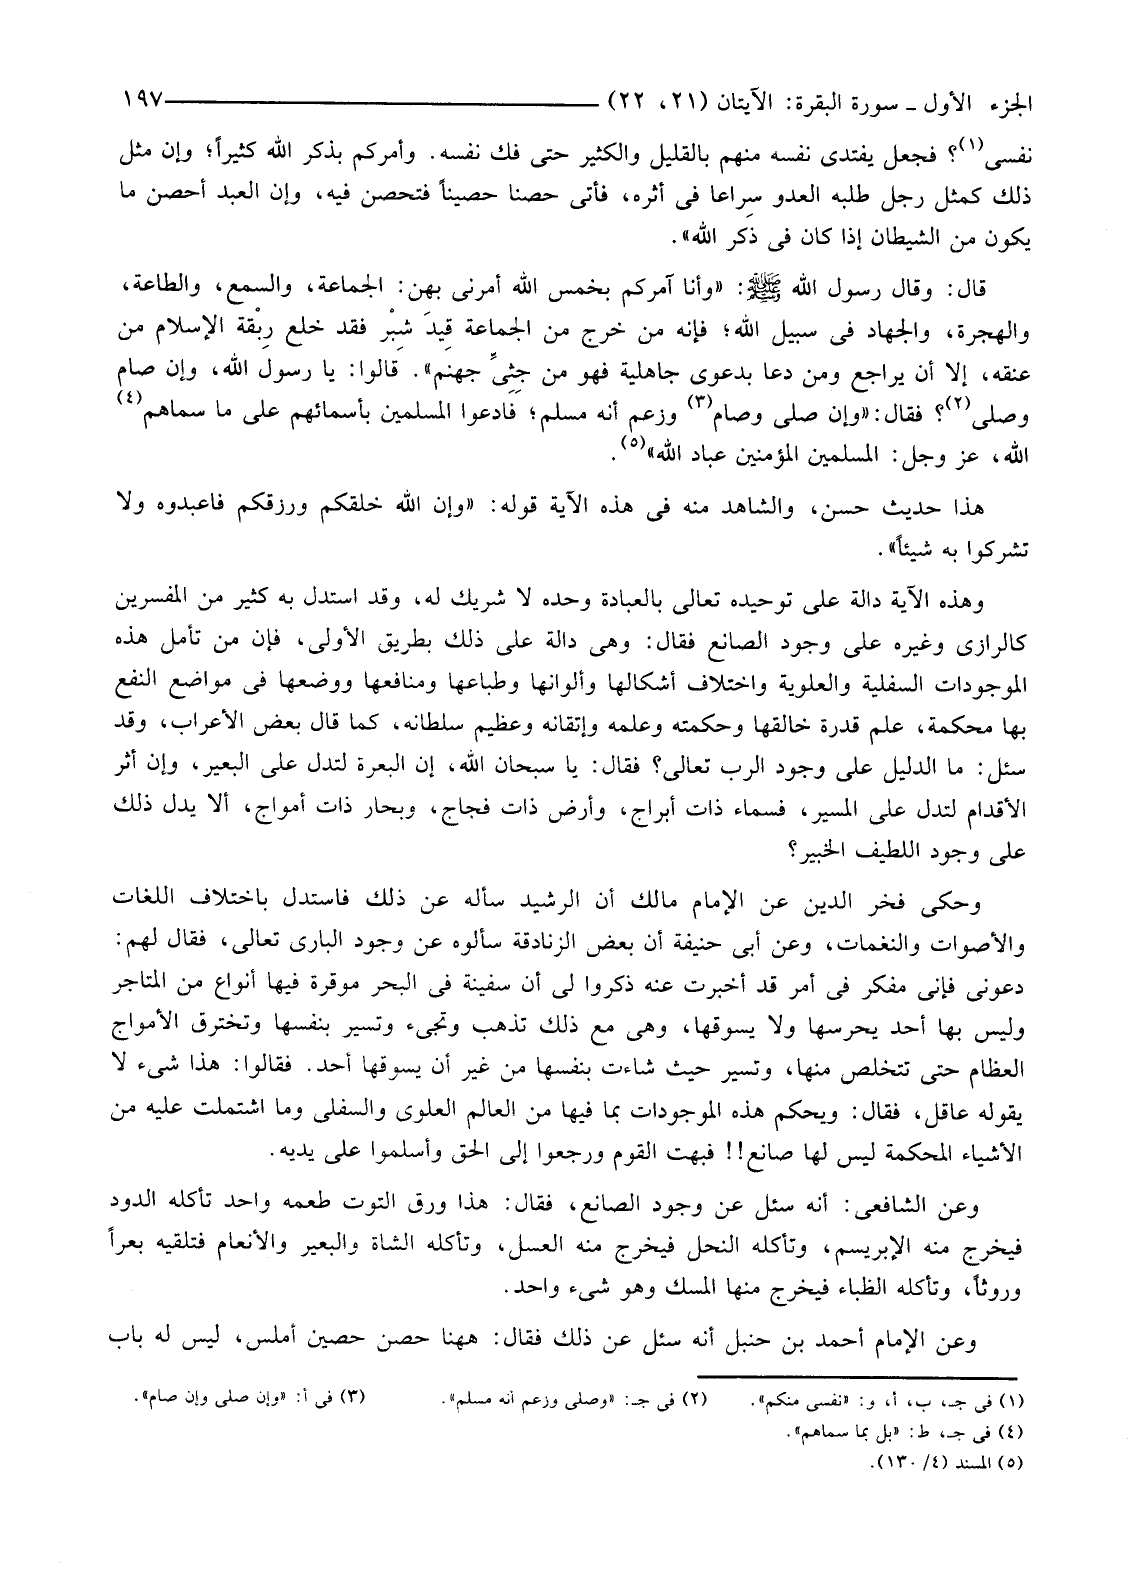 الجزء الأول ـ سورة البقرة: الآيتان (٢١، ٢٢) ١٩٧
نفسى(١)؟ فجعل يفتدى نفسه منهم بالقليل والكثير حتى فك نفسه. وأمركم بذكر الله كثيراً؛ وإن مثل
ذلك كمثل رجل طلبه العدو سِراعا فى أثره، فأتى حصنا حصيناً فتحصن فيه، وإن العبد أحصن ما
يكون من الشيطان إذا كان فى ذكر الله».
قال: وقال رسول الله ﷺ: «وأنا آمركم بخمس الله أمرنى بهن: الجماعة، والسمع، والطاعة،
والهجرة، والجهاد فى سبيل الله؛ فإنه من خرج من الجماعة قِيدَ شِبْر فقد خلع رِبْقة الإسلام من
عنقه، إلا أن يراجع ومن دعا بدعوى جاهلية فهو من جِثِىِّ جهنم». قالوا: يا رسول الله، وإن صام
وصلى(٢)؟ فقال: «وإن صلى وصام(٣) وزعم أنه مسلم؛ فادعوا المسلمين بأسمائهم على ما سماهم(٤)
الله، عز وجل: المسلمين المؤمنين عباد الله»(٥).
هذا حديث حسن، والشاهد منه فى هذه الآية قوله: «وإن الله خلقكم ورزقكم فاعبدوه ولا
تشركوا به شيئاً».
وهذه الآية دالة على توحيده تعالى بالعبادة وحده لا شريك له، وقد استدل به كثير من المفسرين
كالرازى وغيره على وجود الصانع فقال: وهى دالة على ذلك بطريق الأولى، فإن من تأمل هذه
الموجودات السفلية والعلوية واختلاف أشكالها وألوانها وطباعها ومنافعها ووضعها فى مواضع النفع
بها محكمة، علم قدرة خالقها وحكمته وعلمه وإتقانه وعظيم سلطانه، كما قال بعض الأعراب، وقد
سئل: ما الدليل على وجود الرب تعالى؟ فقال: يا سبحان الله، إن البعرة لتدل على البعير، وإن أثر
الأقدام لتدل على المسير، فسماء ذات أبراج، وأرض ذات فجاج، وبحار ذات أمواج، ألا يدل ذلك
على وجود اللطيف الخبير؟
وحكى فخر الدين عن الإمام مالك أن الرشيد سأله عن ذلك فاستدل باختلاف اللغات
والأصوات والنغمات، وعن أبى حنيفة أن بعض الزنادقة سألوه عن وجود البارى تعالى، فقال لهم:
دعونى فإنى مفكر فى أمر قد أخبرت عنه ذكروا لى أن سفينة فى البحر موقرة فيها أنواع من المتاجر
وليس بها أحد يحرسها ولا يسوقها، وهى مع ذلك تذهب وتجىء وتسير بنفسها وتخترق الأمواج
العظام حتى تتخلص منها، وتسير حيث شاءت بنفسها من غير أن يسوقها أحد. فقالوا: هذا شىء لا
يقوله عاقل، فقال: ويحكم هذه الموجودات بما فيها من العالم العلوى والسفلى وما اشتملت عليه من
الأشياء المحكمة ليس لها صانع!! فبهت القوم ورجعوا إلى الحق وأسلموا على يديه.
وعن الشافعى: أنه سئل عن وجود الصانع، فقال: هذا ورق التوت طعمه واحد تأكله الدود
فيخرج منه الإبريسم، وتأكله النحل فيخرج منه العسل، وتأكله الشاة والبعير والأنعام فتلقيه بعراً
وروثاً، وتأكله الظباء فيخرج منها المسك وهو شىء واحد.
وعن الإمام أحمد بن حنبل أنه سئل عن ذلك فقال: ههنا حصن حصين أملس، ليس له باب
(١) فى جـ، ب، أ، و: «نفسى منكم». (٢) فى جـ: «وصلى وزعم أنه مسلم». (٣) فى أ: «وإن صلى وإن صام».
(٤) فى جـ، ط: «بل بما سماهم».
(٥) المسند (٤/ ١٣٠).